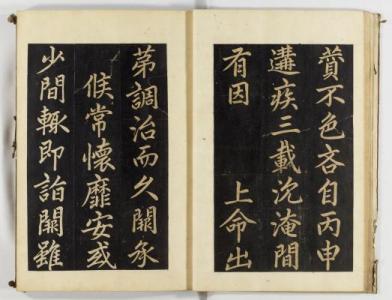 蕢不色吝自丙申
遘疾三載沉淹間
有因　上命出
苐調治而久闕承
候常懷靡安或
少間輙即詣闕雖